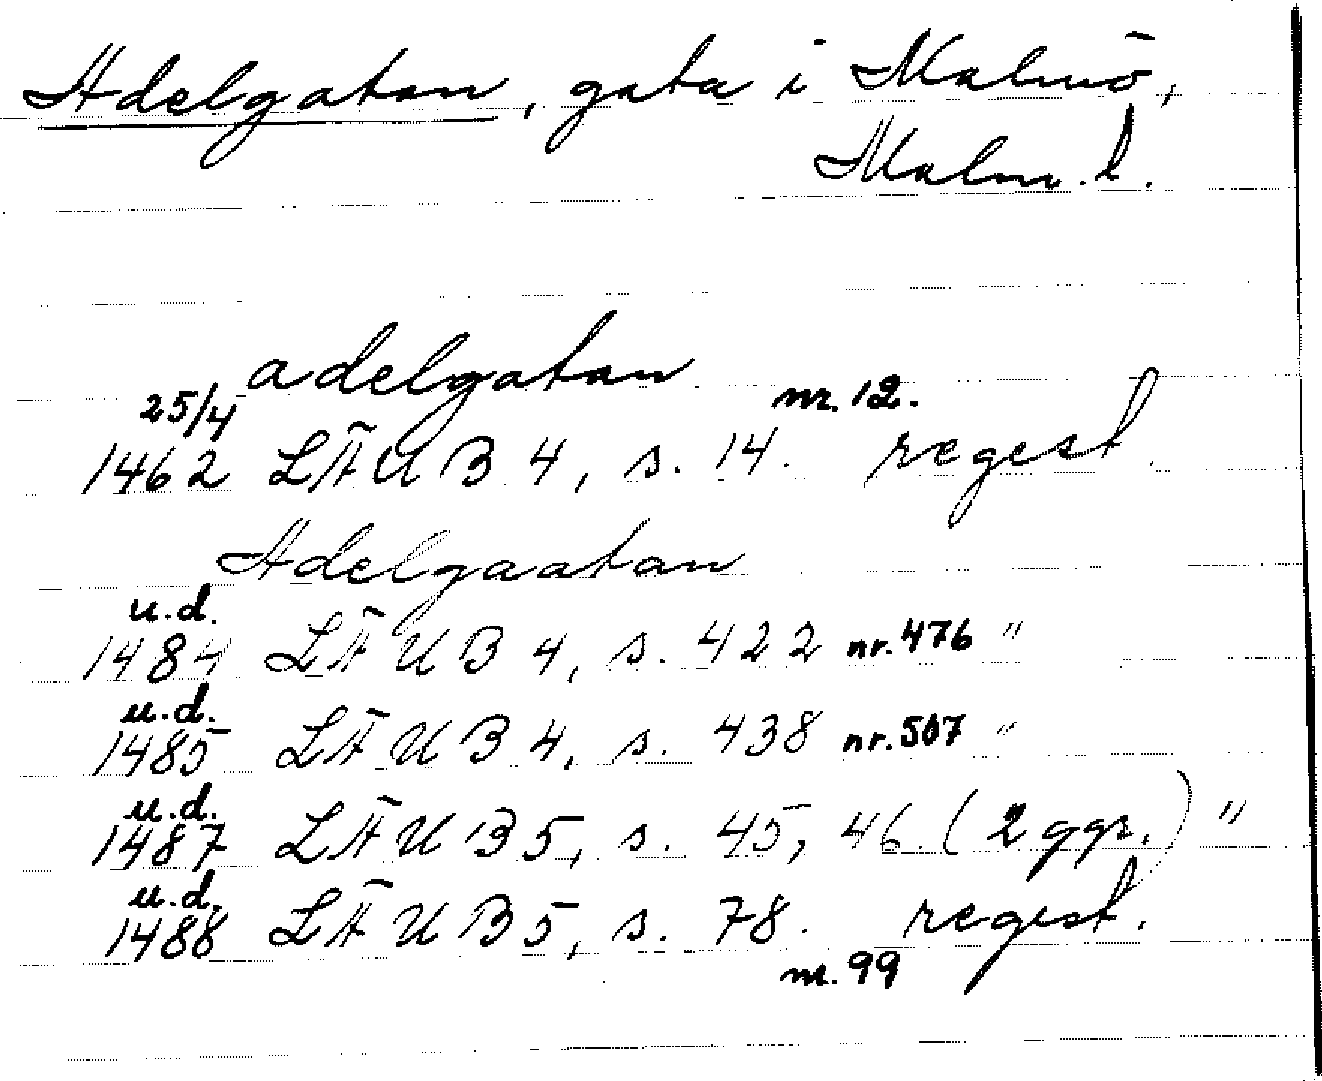 Adelgatan, gata i Malmö,
Malm. l.
adelgatan
25/4 nr. 12.
1462 LÄUB 4, s. 14. regest.
Adelgaatan
u.d.
1484 LÄUB 4, s. 422 nr. 476 "
u.d.
1485 LÄUB 4, s. 438 nr. 507 "
u.d.
1487 LÄUB 5, s. 45, 46. (2 ggr.) "
u.d.
1488 LÄUB 5, s. 78. regest.
nr. 99